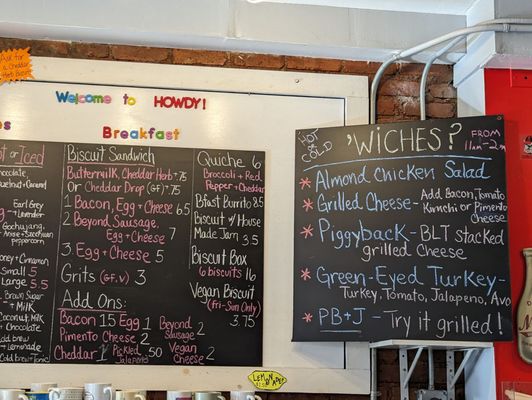 Ask for
a Cheddar
Herb
Welcome to HOWDY!
Breakfast
or Iced
Earl Grey
Lavender
Gochujang,
peppercorn
Honey + Cinnamon
Small 5
Large 5.5
Brown Sugar
+ Milk
Coconut, Milk
+ Chocolate
Cold brew + Tonic
Biscuit Sandwich
Buttermilk, Cheddar Herb +.75
Or Cheddar Drop (GF) +.75
1 Bacon, Egg + Cheese 6.5
2 Beyond Sausage,
Egg + Cheese 7
3. Egg + Cheese 5
Grits (GF, V) 3
Add Ons:
Bacon 1.5 Egg 1
Pimento Cheese 2
Cheddar 1
Pickled .50
Jalapeño
Beyond 2
Sausage
Vegan 2
Cheese
Quiche 6
Broccoli + Red
Pepper + Cheddar
Bfast Burrito 8.5
Biscuit w/ House
Made Jam 3.5
Biscuit Box
6 biscuits 16
Vegan Biscuit
(Fri-Sun Only)
3.75
HOT
or
COLD
'Wiches?
FROM
11am-2pm
* Almond Chicken Salad
* Grilled Cheese - Add Bacon, Tomato
Kimchi or Pimento
Cheese
* Piggyback - BLT stacked
grilled Cheese
* Green-Eyed Turkey -
Turkey, Tomato, Jalapeno, Avo
* PB+J - Try it grilled!